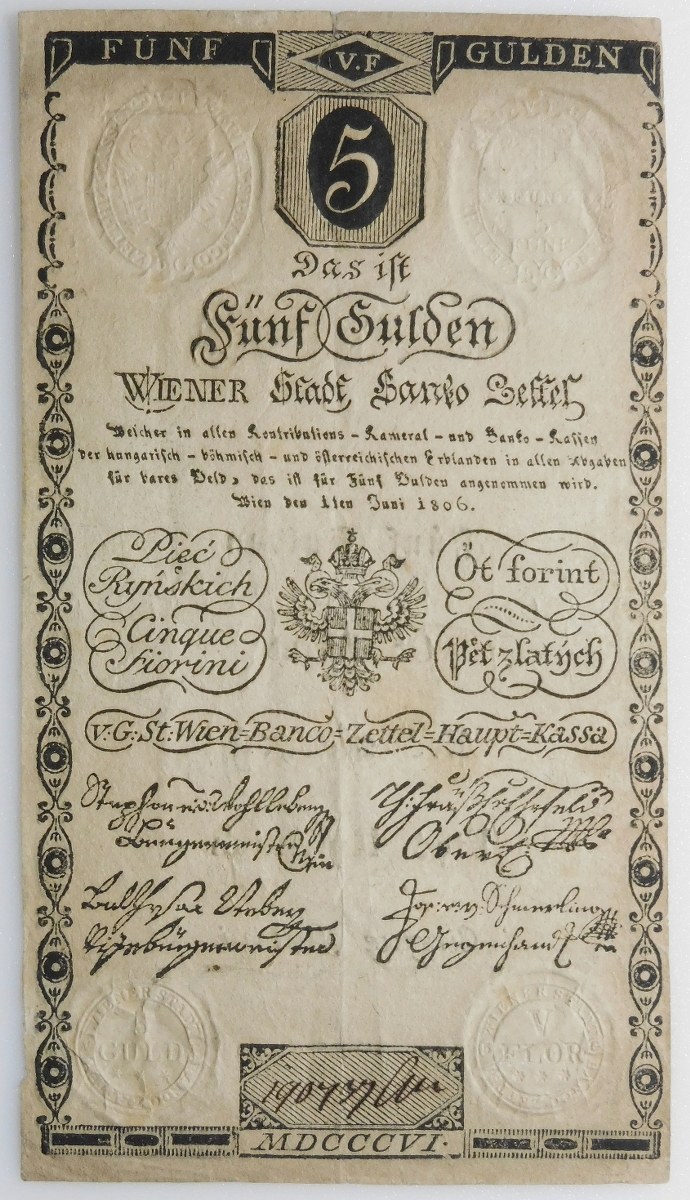 FÜNF V.F GULDEN
5
Das ist
Fünf Gulden
WIENER Stadt Banko Zettel
Welcher in allen Kontributions - Kameral - und Banko - Kassen
der hungarisch - böhmisch - und österreichischen Erblanden in allen Abgaben
für bares Geld, das ist für Fünf Gulden angenommen wird.
Wien den 1ten Juni 1806.
Pięć
Ryńskich
Cinque
Fiorini
Öt forint
Pět zlatých
v: G: St: Wien=Banco=Zettel=Haupt=Kassa
Bürgermeister
Ober
Vizebürgermeister
Gegenhand
5
GULD
V
FLOR
190737
MDCCCVI.